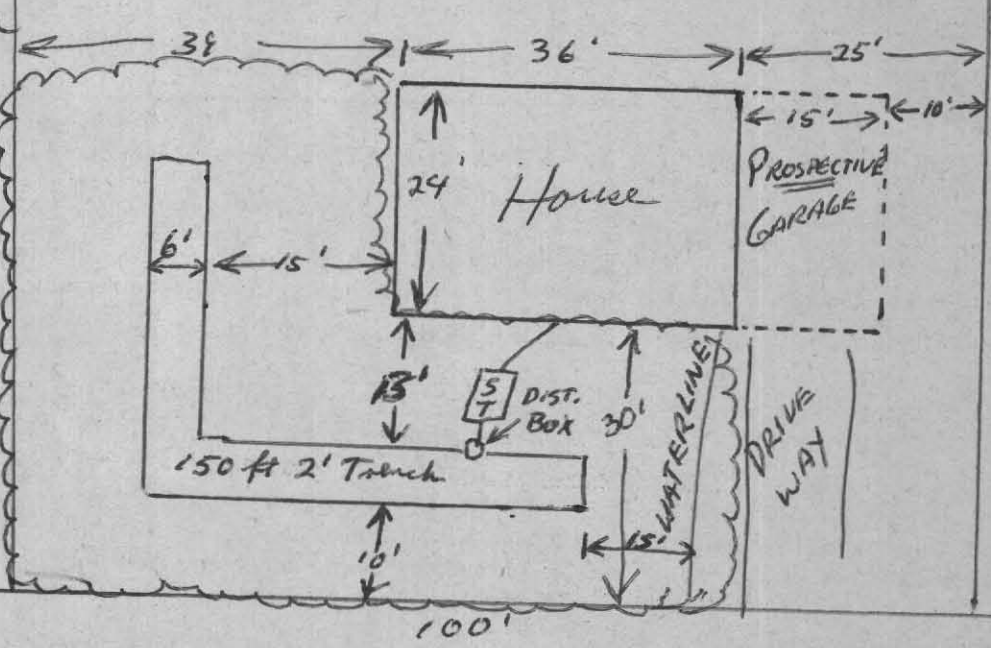 39
36'
25'
15'
10'
PROSPECTIVE
GARAGE
24'
House
6'
15'
13'
S
T
DIST.
BOX
30'
WATERLINE
DRIVE
WAY
150 ft 2' Trench
15'
10'
100'